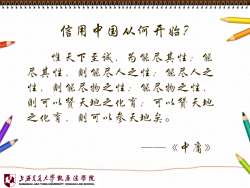 信用中国从何开始？
惟天下至诚，为能尽其性；能
尽其性，则能尽人之性；能尽人之
性，则能尽物之性；能尽物之性，
则可以赞天地之化育；可以赞天地
之化育，则可以参天地矣。
——《中庸》
上海交通大学凯原法学院